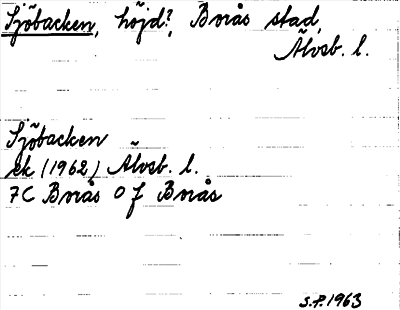 Sjöbacken, höjd?, Borås stad,
Älvsb. l.
Sjöbacken
ek (1962) Älvsb. l.
7C Borås 0 f Borås
S.P. 1963